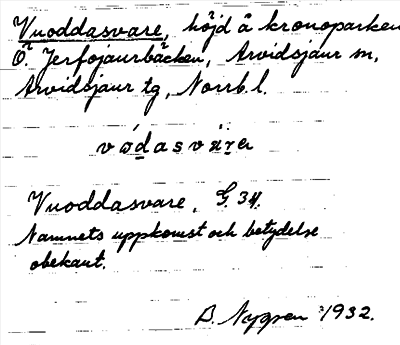 Vuoddasvare, höjd å kronoparken
Ö. Jerfojaurbäcken, Arvidsjaur sn,
Arvidsjaur tg, Norrb. l.
vódasvárə
Vuoddasvare, G. 34.
Namnets uppkomst och betydelse
obekant.
B. Nygren 1932.